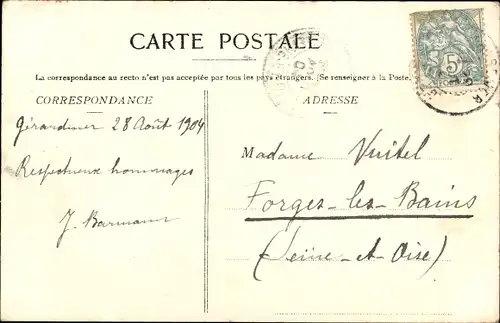 CARTE POSTALE
La correspondance au recto n'est pas acceptée par tous les pays étrangers. (Se renseigner à la Poste.
CORRESPONDANCE
Gérardmer 28 Août 1904
Respectueux hommages
J. Barmann
ADRESSE
Madame Vuitel
Forges-les-Bains
(Seine-et-Oise)
5